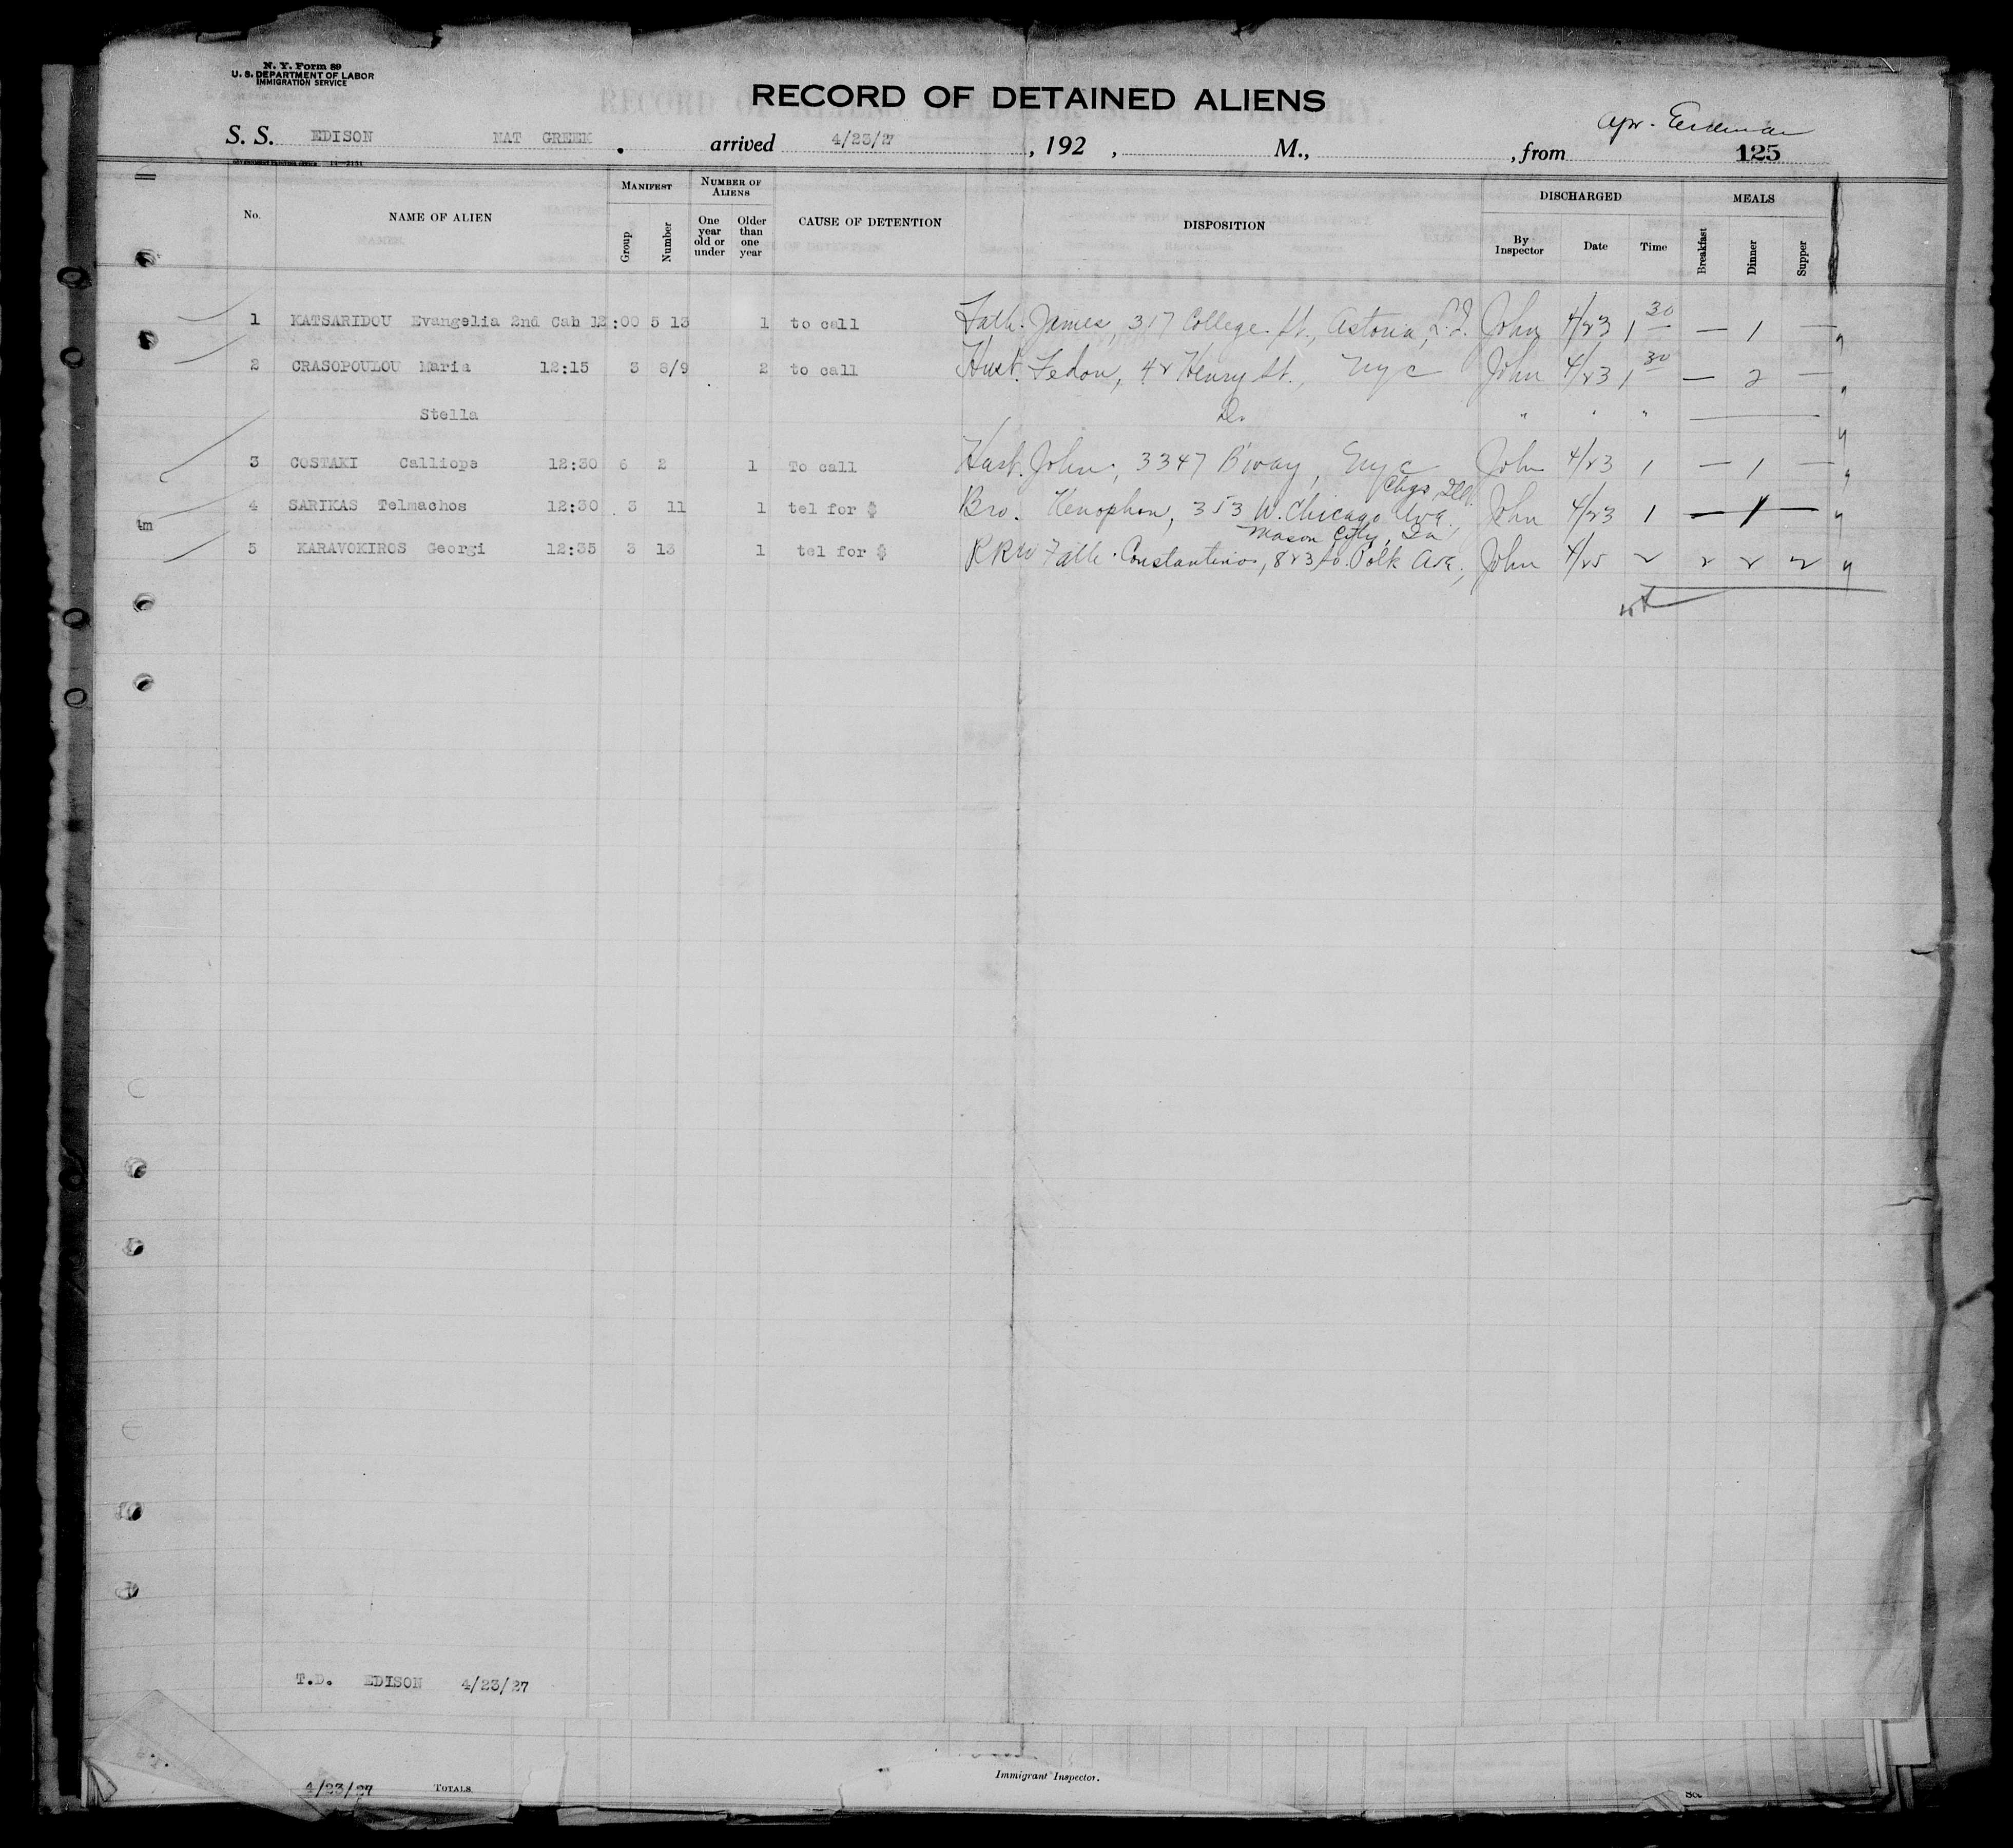 N. Y. Form 89
U. S. DEPARTMENT OF LABOR
IMMIGRATION SERVICE
RECORD OF DETAINED ALIENS
S. S. EDISON NAT GREEK . arrived 4/23/27 , 192 , M., , from 125
GOVERNMENT PRINTING OFFICE
No. NAME OF ALIEN MANIFEST Group Number NUMBER OF ALIENS One year old or under Older than one year CAUSE OF DETENTION DISPOSITION DISCHARGED By Inspector Date Time MEALS Breakfast Dinner Supper
1 KATSARIDOU Evangelia 2nd Cab 12:00 5 13 1 to call Fath. James, 317 College St., Astoria, L.I. John 4/23 1 30 — 1 —
2 CRASOPOULOU Maria 12:15 3 8/9 2 to call Husb. Fedon, 42 Henry St., NYC John 4/23 1 30 — 2 —
Stella Do " " "
3 COSTAKI Calliope 12:30 6 2 1 To call Husb. John, 3347 B'way, NYC John 4/23 1 — 1 —
Chgo, Ill.
4 SARIKAS Telmachos 12:30 3 11 1 tel for $ Bro. Xenophon, 353 W. Chicago Ave., John 4/23 1 — 1 —
tm
Mason City, Ia
5 KARAVOKIROS Georgi 12:35 3 13 1 tel for $ RRW Fath. Constantinos, 823 So. Polk Ave., John 4/25 2 2 2 2
T.D. EDISON 4/23/27
Immigrant Inspector.
4/23/27 TOTALS